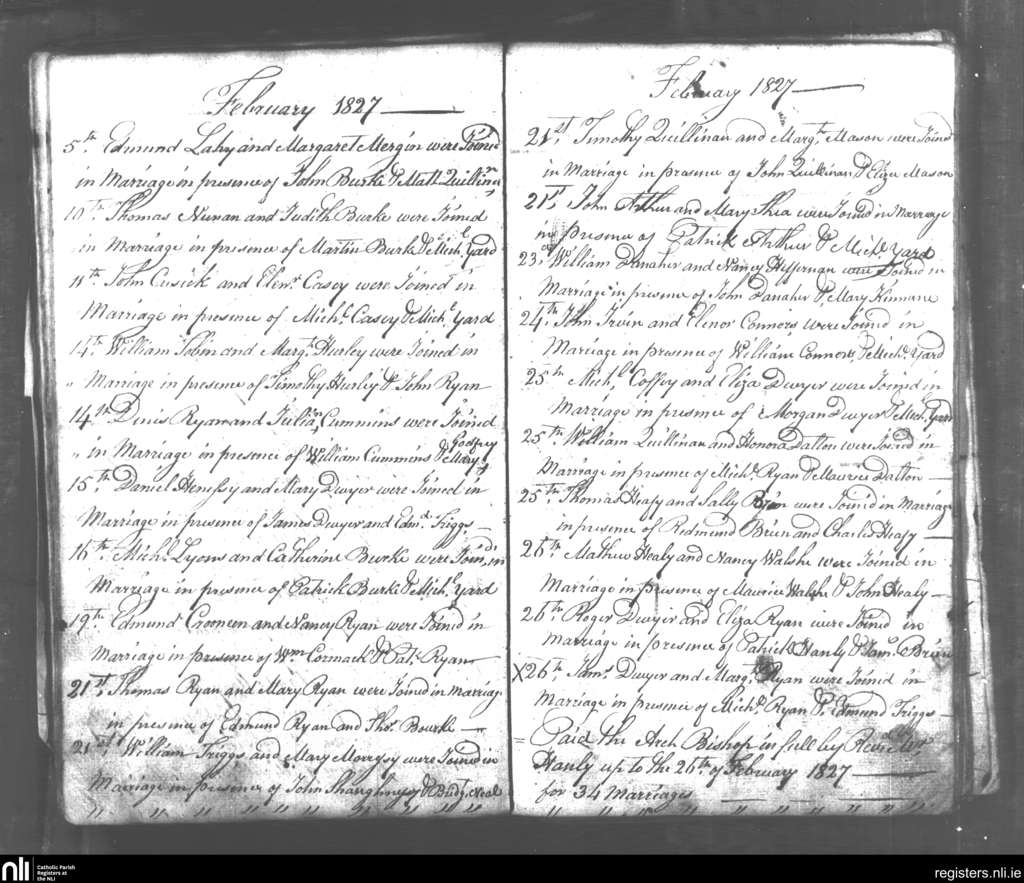 February 1827
5th Edmund Lahy and Margaret Mergin were Joined
in Marriage in presence of John Burke & Matt Quillinan
10th Thomas Nunan and Judith Burke were Joined
in Marriage in presence of Martin Burke & Michl Yard
11th John Cusick and Elenr Casey were Joined in
Marriage in presence of Michl Casey & Michl Yard
14th William Tobin and Margt Hurley were Joined in
" Marriage in presence of Timothy Hurley & John Ryan
14th Denis Ryan and Julian Cummins were Joined
" in Marriage in presence of William Cummins & Mary Godfrey
15th Daniel Henessy and Mary Dwyer were Joined in
Marriage in presence of James Dwyer and Edmd Triggs
16th Michl Lyons and Catherine Burke were Joind in
Marriage in presence of Patrick Burke & Michl Yard
19th Edmund Croneen and Nancy Ryan were Joined in
Marriage in presence of Wm Cormack & Pat. Ryan
21st Thomas Ryan and Mary Ryan were Joined in Marriage
in presence of Edmund Ryan and Thos Bourke
21st William Triggs and Mary Morrysy were Joined in
Marriage in presence of John Shaughnesy & Bridgt Neal
February 1827
21st Timothy Quillinan and Margt Mason were Joined
in Marriage in presence of John Quillinan & Eliza Mason
21st John Arthur and Mary Shea were Joined in Marriage
in presence of Patrick Arthur & Michl Yard
23d William Danaher and Nancy Heffernan were Joined in
Marriage in presence of John Danaher & Mary Kinnane
24th John Irwin and Elenor Connors were Joined in
Marriage in presence of William Connors, & Michl Yard
25th Michl Coffey and Eliza Dwyer were Joined in
Marriage in presence of Morgan Dwyer & Mich. Yard
25th William Quillinan and Honora Dalton were Joined in
Marriage in presence of Michl Ryan & Maurice Dalton
25th Thomas Heafy and Sally Ryan were Joined in Marriage
in presence of Redmund Brien and Charles Heafy
26th Mathew Healy and Nancy Walshe were Joined in
Marriage in presence of Maurice Walshe & John Healy
26th Roger Dwyer and Eliza Ryan were Joined in
Marriage in presence of Patrick Hanly & Jams Brien
X 26th Jams Dwyer and Margt Ryan were Joined in
Marriage in presence of Michl Ryan & Edmund Triggs
= Paid the Arch Bishop in full by Revd Mr
Hanly up to the 26th of February 1827
for 34 Marriages
nli
Catholic Parish
Registers at
the NLI
registers.nli.ie